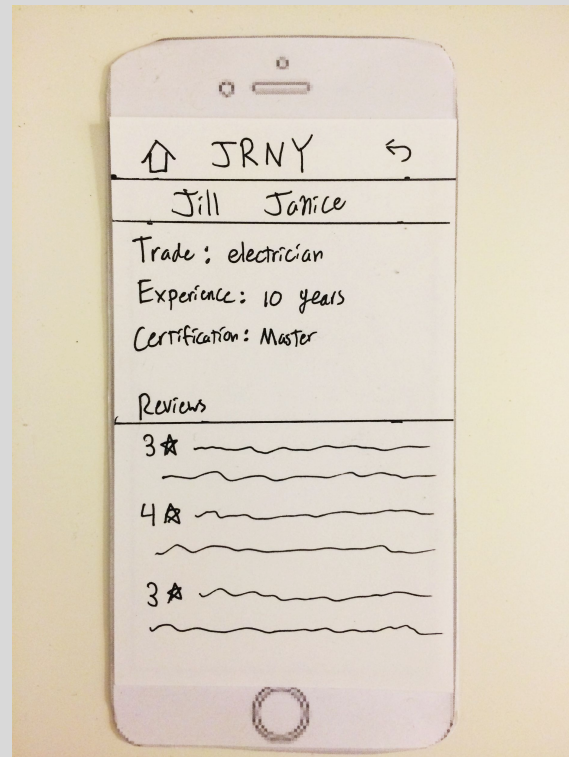 JRNY
Jill Janice
Trade: electrician
Experience: 10 years
Certification: Master
Reviews
3☆
4☆
3☆